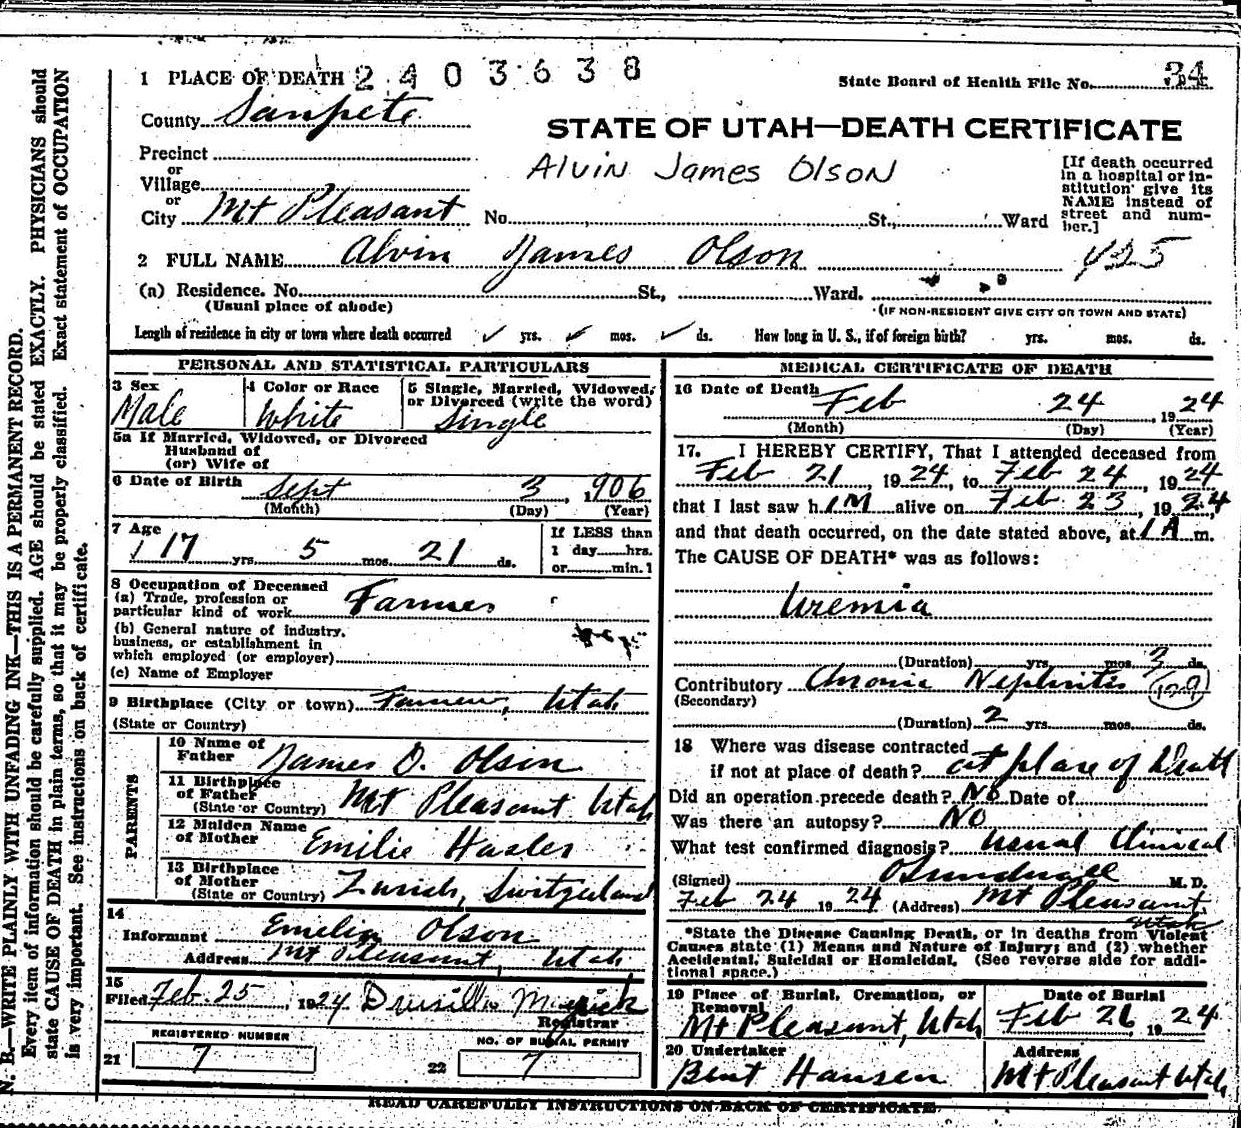 1 PLACE OF DEATH 2403638
State Board of Health File No. 34
County Sanpete
STATE OF UTAH—DEATH CERTIFICATE
Precinct
or
Village
or
City Mt Pleasant No. St., Ward
Alvin James Olson
[If death occurred
in a hospital or in-
stitution give its
NAME instead of
street and num-
ber.]
2 FULL NAME Alvin James Olson
425
(a) Residence. No. St., Ward.
(Usual place of abode)
(IF NON-RESIDENT GIVE CITY OR TOWN AND STATE)
Length of residence in city or town where death occurred yrs. mos. ds. How long in U. S., if of foreign birth? yrs. mos. ds.
PERSONAL AND STATISTICAL PARTICULARS
3 Sex
Male
4 Color or Race
White
5 Single, Married, Widowed,
or Divorced (write the word)
Single
5a If Married, Widowed, or Divorced
Husband of
(or) Wife of
6 Date of Birth Sept 3, 1906
(Month) (Day) (Year)
7 Age
17 yrs. 5 mos. 21 ds.
If LESS than
1 day hrs.
or min.
8 Occupation of Deceased
(a) Trade, profession or
particular kind of work Farmer
(b) General nature of industry,
business, or establishment in
which employed (or employer)
(c) Name of Employer
9 Birthplace (City or town) Utah
(State or Country)
PARENTS
10 Name of
Father James O. Olson
11 Birthplace
of Father
(State or Country) Mt Pleasant Utah
12 Maiden Name
of Mother Emilie Hasler
13 Birthplace
of Mother
(State or Country) Zurich, Switzerland
14
Informant Olson
Address Mt Pleasant, Utah
15
Filed Feb. 25, 1924
Registrar
REGISTERED NUMBER
21 7
NO. OF BURIAL PERMIT
22 7
MEDICAL CERTIFICATE OF DEATH
16 Date of Death Feb 24, 1924
(Month) (Day) (Year)
17. I HEREBY CERTIFY, That I attended deceased from
Feb 21, 1924, to Feb 24, 1924
that I last saw h im alive on Feb 23, 1924,
and that death occurred, on the date stated above, at 1 A m.
The CAUSE OF DEATH* was as follows:
Uremia
(Duration) yrs. mos. 3 ds.
Contributory Chronic Nephritis 129
(Secondary)
(Duration) 2 yrs. mos. ds.
18 Where was disease contracted
if not at place of death? at place of Death
Did an operation precede death? No Date of
Was there an autopsy? No
What test confirmed diagnosis? Usual Clinical
(Signed) M. D.
Feb 24 1924 (Address) Mt Pleasant,
Utah
*State the Disease Causing Death, or in deaths from Violent
Causes state (1) Means and Nature of Injury; and (2) whether
Accidental, Suicidal or Homicidal. (See reverse side for addi-
tional space.)
19 Place of Burial, Cremation, or
Removal
Mt Pleasant, Utah
Date of Burial
Feb 26, 1924
20 Undertaker
Bent Hansen
Address
Mt Pleasant Utah
READ CAREFULLY INSTRUCTIONS ON BACK OF CERTIFICATE
N. B.—WRITE PLAINLY WITH UNFADING INK—THIS IS A PERMANENT RECORD.
Every item of information should be carefully supplied. AGE should be stated EXACTLY. PHYSICIANS should
state CAUSE OF DEATH in plain terms, so that it may be properly classified. Exact statement of OCCUPATION
is very important. See instructions on back of certificate.